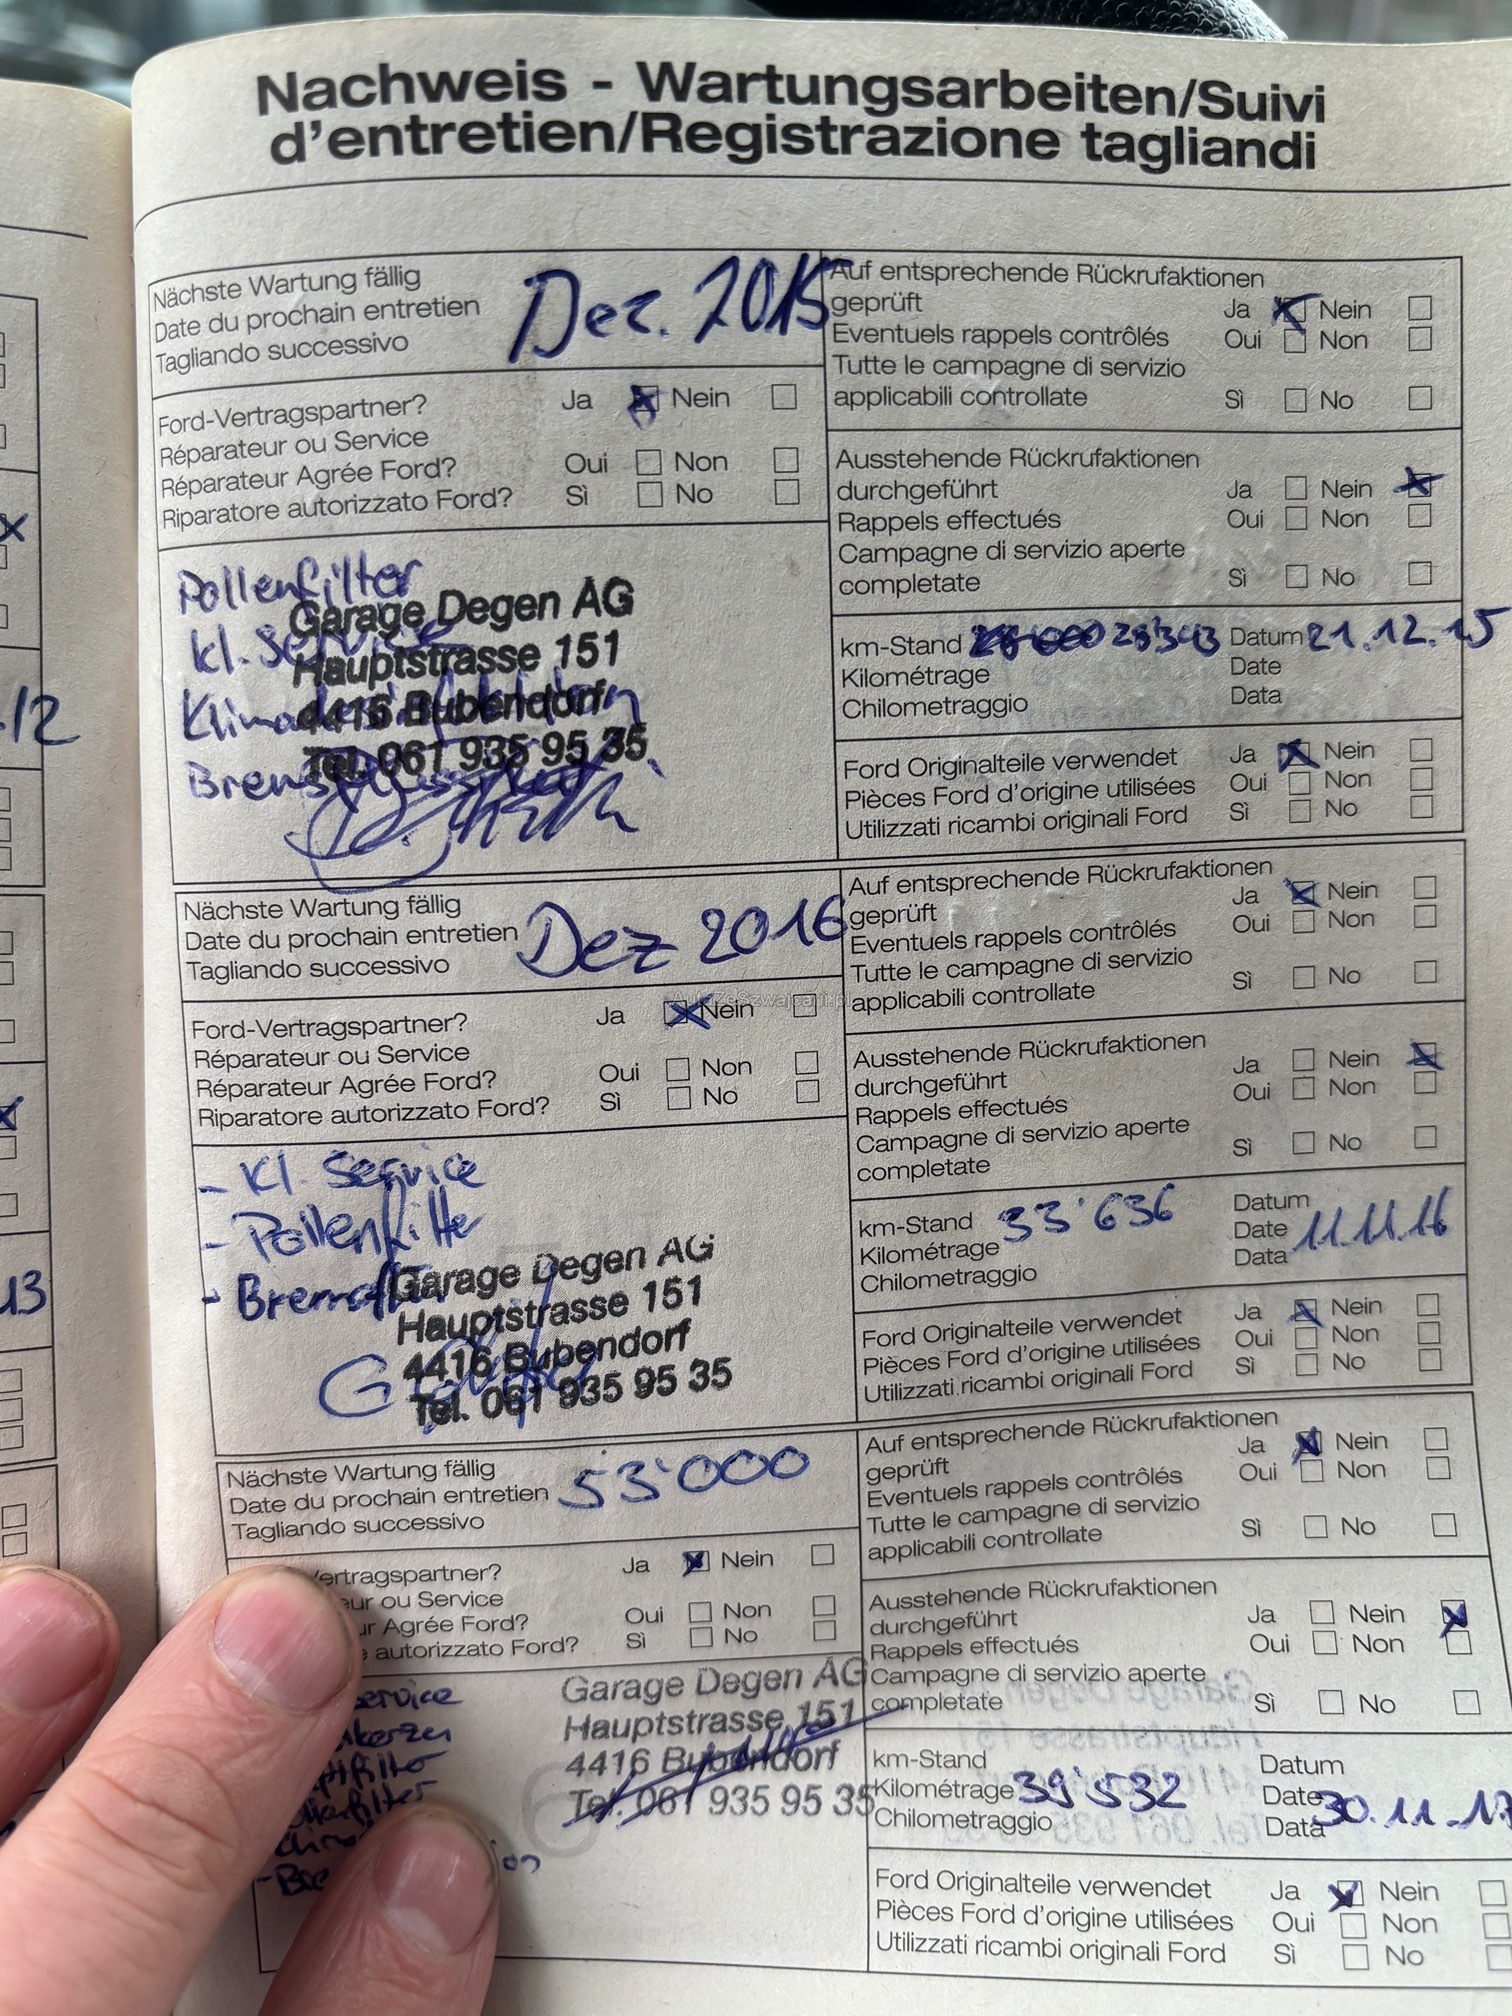 Nachweis - Wartungsarbeiten/Suivi
d'entretien/Registrazione tagliandi
Nächste Wartung fällig
Date du prochain entretien
Tagliando successivo
Dez. 2015
Ford-Vertragspartner? Ja Nein
Réparateur ou Service
Réparateur Agrée Ford? Oui Non
Riparatore autorizzato Ford? Sì No
Pollenfilter
kl. Service
Garage Degen AG
Hauptstrasse 151
4416 Bubendorf
Tel. 061 935 95 35
Auf entsprechende Rückrufaktionen
geprüft Ja Nein
Eventuels rappels contrôlés Oui Non
Tutte le campagne di servizio
applicabili controllate Sì No
Ausstehende Rückrufaktionen
durchgeführt Ja Nein
Rappels effectués Oui Non
Campagne di servizio aperte
completate Sì No
km-Stand 28'343 Datum 21.12.15
Kilométrage Date
Chilometraggio Data
Ford Originalteile verwendet Ja Nein
Pièces Ford d'origine utilisées Oui Non
Utilizzati ricambi originali Ford Sì No
Nächste Wartung fällig
Date du prochain entretien
Tagliando successivo
Dez 2016
Ford-Vertragspartner? Ja Nein
Réparateur ou Service
Réparateur Agrée Ford? Oui Non
Riparatore autorizzato Ford? Sì No
- Kl. Service
- Pollenfilter
Garage Degen AG
Hauptstrasse 151
4416 Bubendorf
Tel. 061 935 95 35
Auf entsprechende Rückrufaktionen
geprüft Ja Nein
Eventuels rappels contrôlés Oui Non
Tutte le campagne di servizio
applicabili controllate Sì No
Ausstehende Rückrufaktionen
durchgeführt Ja Nein
Rappels effectués Oui Non
Campagne di servizio aperte
completate Sì No
km-Stand 33'636 Datum
Kilométrage Date 11.11.16
Chilometraggio Data
Ford Originalteile verwendet Ja Nein
Pièces Ford d'origine utilisées Oui Non
Utilizzati ricambi originali Ford Sì No
Nächste Wartung fällig
Date du prochain entretien 53'000
Tagliando successivo
ertragspartner? Ja Nein
ur ou Service
r Agrée Ford? Oui Non
autorizzato Ford? Sì No
ervice
Garage Degen AG
Hauptstrasse 151
4416 Bubendorf
Tel. 061 935 95 35
Auf entsprechende Rückrufaktionen
geprüft Ja Nein
Eventuels rappels contrôlés Oui Non
Tutte le campagne di servizio
applicabili controllate Sì No
Ausstehende Rückrufaktionen
durchgeführt Ja Nein
Rappels effectués Oui Non
Campagne di servizio aperte
completate Sì No
km-Stand Datum
Kilométrage 39'532 Date 30.11.17
Chilometraggio Data
Ford Originalteile verwendet Ja Nein
Pièces Ford d'origine utilisées Oui Non
Utilizzati ricambi originali Ford Sì No